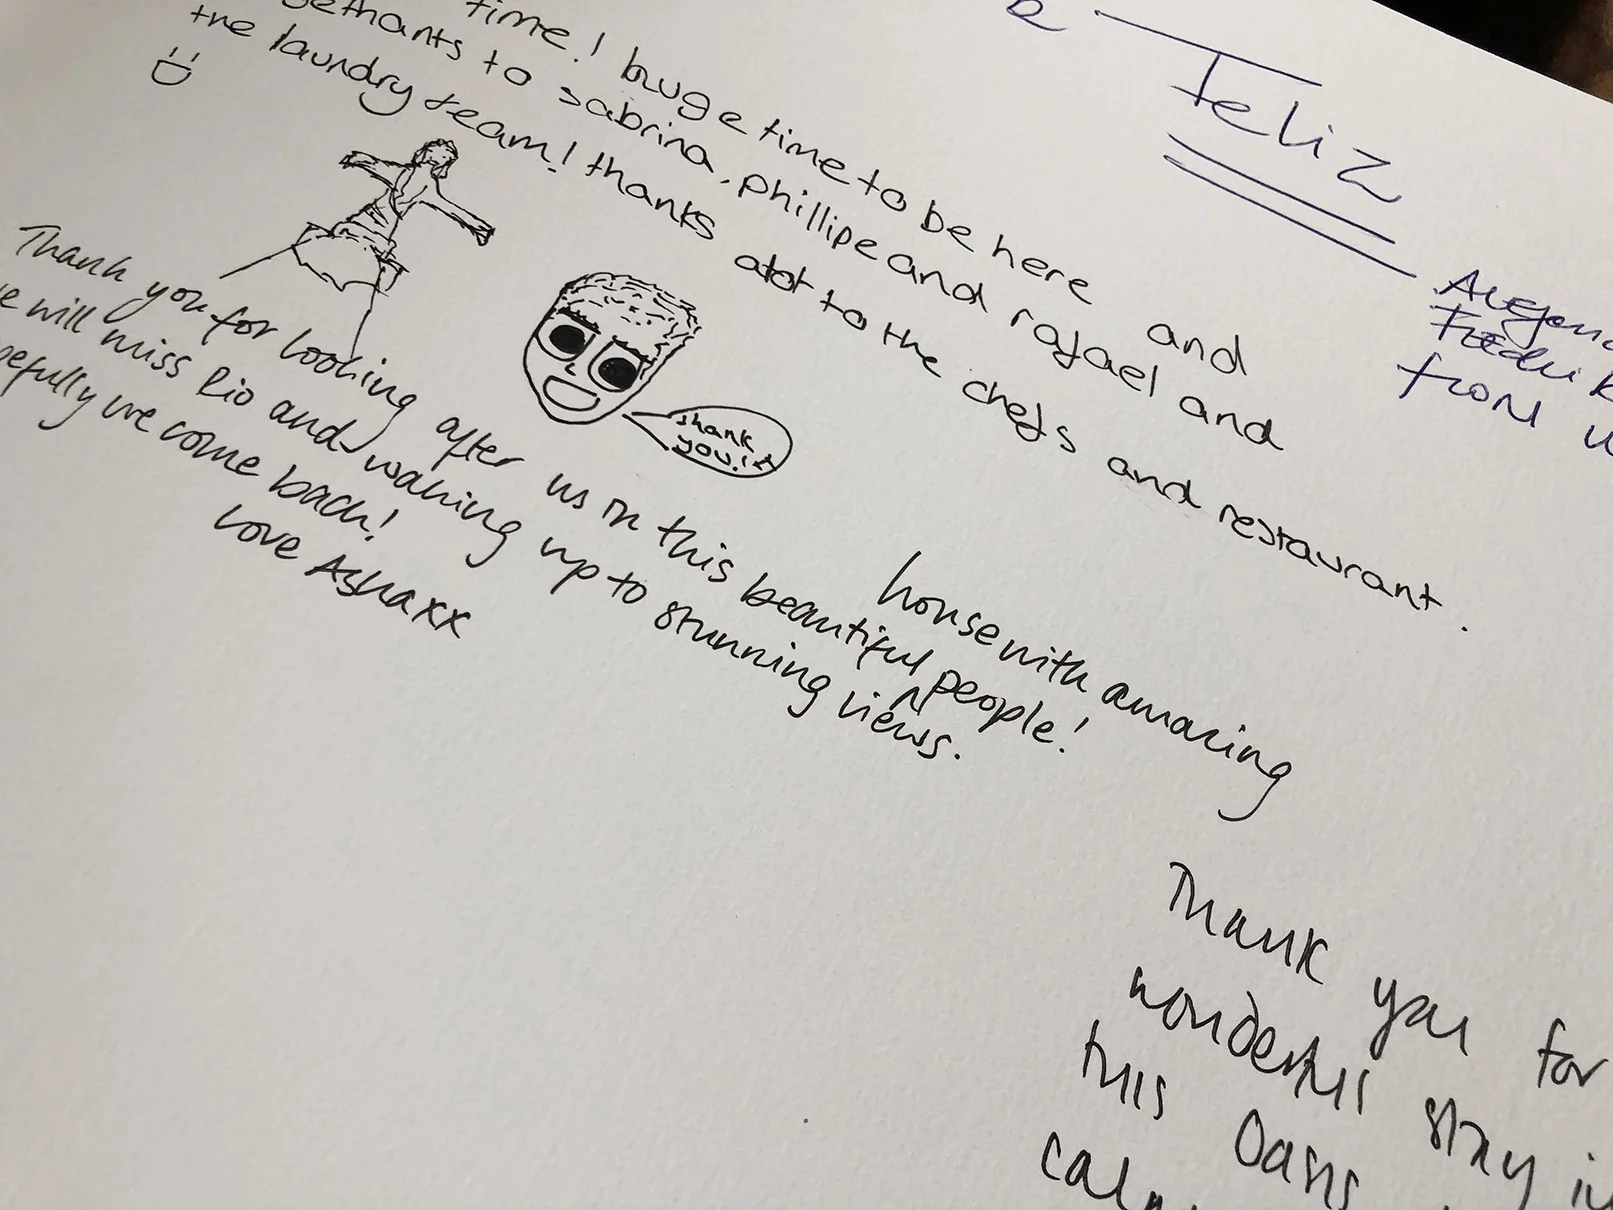 time! huge time to be here and
to sabrina, phillipe and rafael and
the laundry team! thanks alot to the chefs and restaurant.
thank
you!
Thank you for looking after us in this beautiful house with amazing people!
will miss Rio and waking up to stunning views.
we come back!
love Asha xx
Feliz
from
Thank you for
wonderful stay in
this Oasis